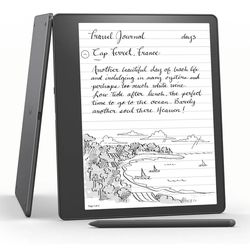 Travel Journal day 3
Cap Ferret, France
Another beautiful day of bach life
and indulging in many oysters and
perhaps too much white wine.
Low tide after lunch, the perfect
time to go to the ocean. Barely
another soul there. Heaven!